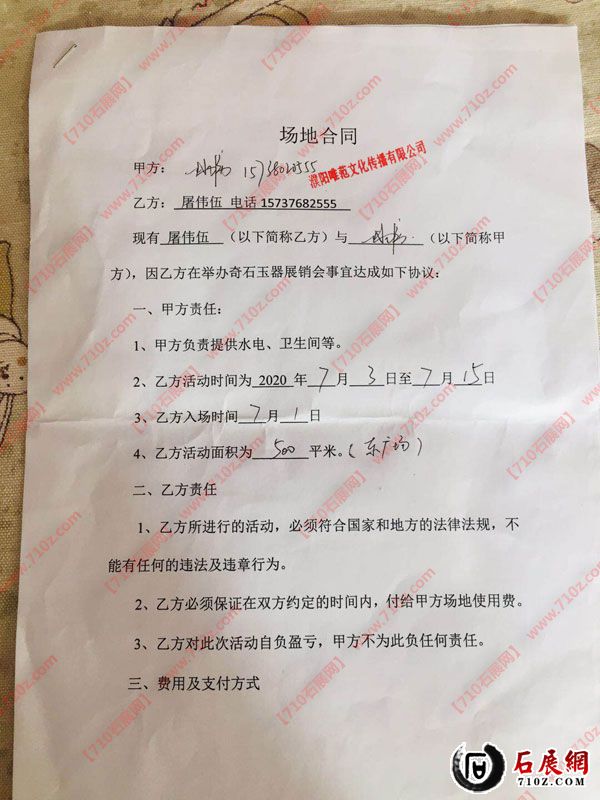 场地合同
甲方：
濮阳唯范文化传播有限公司
乙方： 屠伟伍 电话 15737682555
现有 屠伟伍 （以下简称乙方）与 （以下简称甲
方），因乙方在举办奇石玉器展销会事宜达成如下协议：
一、甲方责任：
1、甲方负责提供水电、卫生间等。
2、乙方活动时间为 2020 年 7 月 3 日至 7 月 15 日
3、乙方入场时间 7 月 1 日
4、乙方活动面积为 500 平米。（东广场）
二、乙方责任
1、乙方所进行的活动，必须符合国家和地方的法律法规，不
能有任何的违法及违章行为。
2、乙方必须保证在双方约定的时间内，付给甲方场地使用费。
3、乙方对此次活动自负盈亏，甲方不为此负任何责任。
三、费用及支付方式
【710石展网】 www.710z.com
石展網
710Z.COM